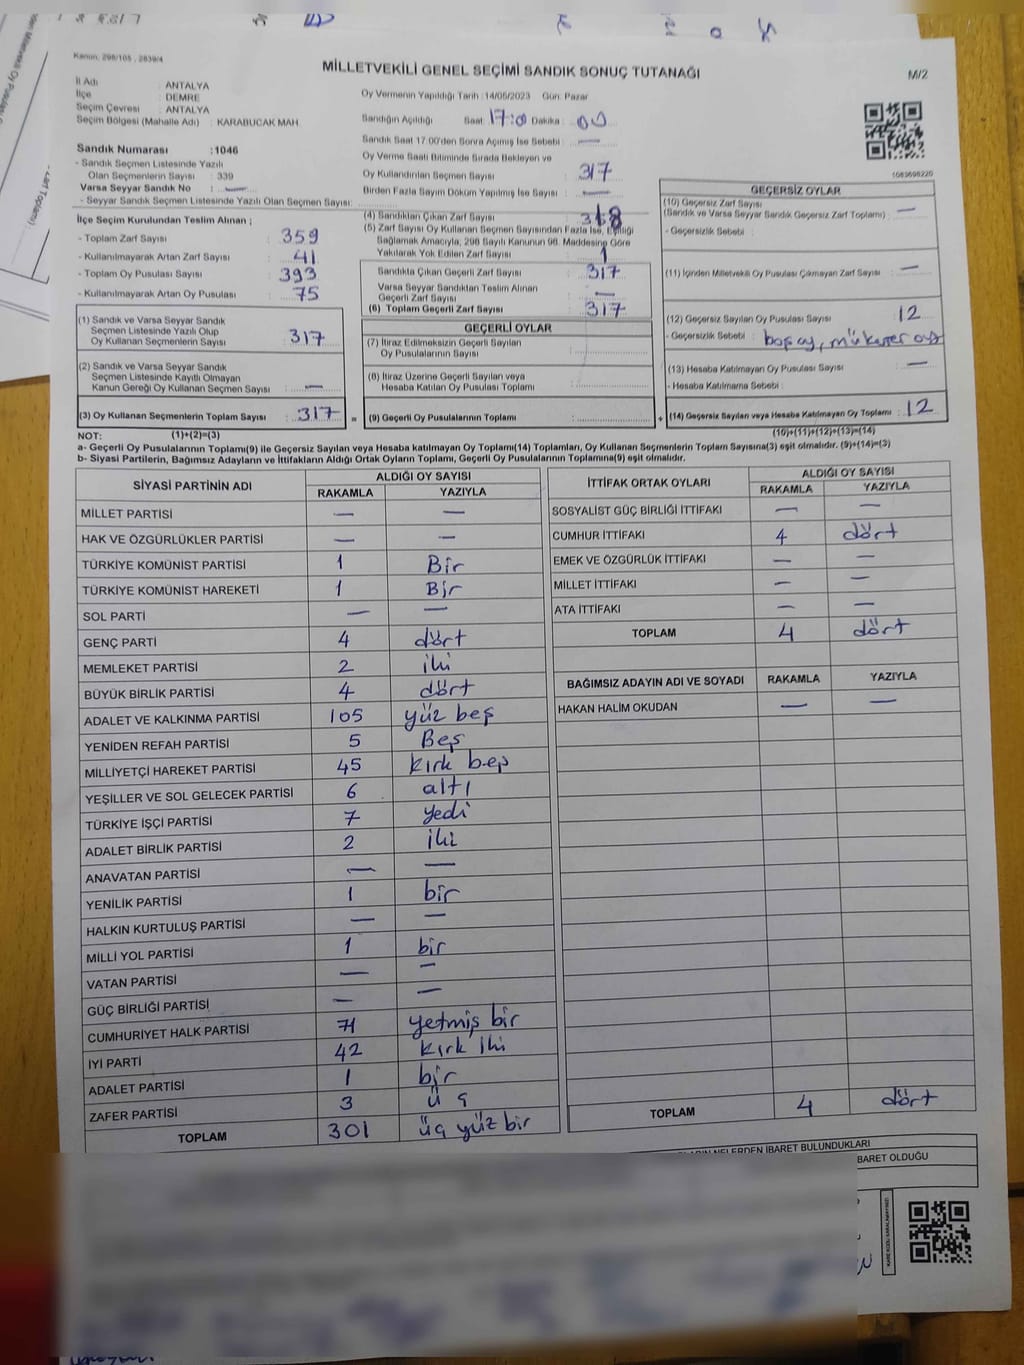 Kanun, 298/105 , 2839/4
MİLLETVEKİLİ GENEL SEÇİMİ SANDIK SONUÇ TUTANAĞI
M/2
İl Adı : ANTALYA
İlçe : DEMRE
Seçim Çevresi : ANTALYA
Seçim Bölgesi (Mahalle Adı) : KARABUCAK MAH.
Oy Vermenin Yapıldığı Tarih :14/05/2023 Gün: Pazar
Sandığın Açıldığı Saat: 17:0 Dakika : 00
Sandık Saat 17:00'den Sonra Açımış İse Sebebi : —
Oy Verme Saati Bitiminde Sırada Bekleyen ve
Oy Kullandırılan Seçmen Sayısı : 317
Birden Fazla Sayım Döküm Yapılmış İse Sayısı : —
Sandık Numarası : 1046
- Sandık Seçmen Listesinde Yazılı
Olan Seçmenlerin Sayısı : 339
Varsa Seyyar Sandık No : —
- Seyyar Sandık Seçmen Listesinde Yazılı Olan Seçmen Sayısı:
İlçe Seçim Kurulundan Teslim Alınan ;
- Toplam Zarf Sayısı : 359
- Kullanılmayarak Artan Zarf Sayısı : 41
- Toplam Oy Pusulası Sayısı : 393
- Kullanılmayarak Artan Oy Pusulası : 75
(1) Sandık ve Varsa Seyyar Sandık
Seçmen Listesinde Yazılı Olup
Oy Kullanan Seçmenlerin Sayısı : 317
(2) Sandık ve Varsa Seyyar Sandık
Seçmen Listesinde Kayıtlı Olmayan
Kanun Gereği Oy Kullanan Seçmen Sayısı : —
(3) Oy Kullanan Seçmenlerin Toplam Sayısı : 317 =
(4) Sandıktan Çıkan Zarf Sayısı : 318
(5) Zarf Sayısı Oy Kullanan Seçmen Sayısından Fazla İse, Eşitliği
Sağlamak Amacıyla, 298 Sayılı Kanunun 98. Maddesine Göre
Yakılarak Yok Edilen Zarf Sayısı : 1
Sandıkta Çıkan Geçerli Zarf Sayısı : 317
Varsa Seyyar Sandıktan Teslim Alınan
Geçerli Zarf Sayısı : —
(6) Toplam Geçerli Zarf Sayısı : 317
GEÇERLİ OYLAR
(7) İtiraz Edilmeksizin Geçerli Sayılan
Oy Pusulalarının Sayısı :
(8) İtiraz Üzerine Geçerli Sayılan veya
Hesaba Katılan Oy Pusulası Toplamı :
(9) Geçerli Oy Pusulalarının Toplamı : +
1083698220
GEÇERSİZ OYLAR
(10) Geçersiz Zarf Sayısı
(Sandık ve Varsa Seyyar Sandık Geçersiz Zarf Toplamı) : —
- Geçersizlik Sebebi :
(11) İçinden Milletvekili Oy Pusulası Çıkmayan Zarf Sayısı : —
(12) Geçersiz Sayılan Oy Pusulası Sayısı : 12
- Geçersizlik Sebebi : boş oy, mükerrer oy
(13) Hesaba Katılmayan Oy Pusulası Sayısı : —
- Hesaba Katılmama Sebebi :
(14) Geçersiz Sayılan veya Hesaba Katılmayan Oy Toplamı : 12
NOT: (1)+(2)=(3)
(10)+(11)+(12)+(13)=(14)
a- Geçerli Oy Pusulalarının Toplamı(9) ile Geçersiz Sayılan veya Hesaba katılmayan Oy Toplamı(14) Toplamları, Oy Kullanan Seçmenlerin Toplam Sayısına(3) eşit olmalıdır. (9)+(14)=(3)
b- Siyasi Partilerin, Bağımsız Adayların ve İttifakların Aldığı Ortak Oyların Toplamı, Geçerli Oy Pusulalarının Toplamına(9) eşit olmalıdır.
SİYASİ PARTİNİN ADI ALDIĞI OY SAYISI
RAKAMLA YAZIYLA
MİLLET PARTİSİ — —
HAK VE ÖZGÜRLÜKLER PARTİSİ — —
TÜRKİYE KOMÜNİST PARTİSİ 1 Bir
TÜRKİYE KOMÜNİST HAREKETİ 1 Bir
SOL PARTİ — —
GENÇ PARTİ 4 dört
MEMLEKET PARTİSİ 2 iki
BÜYÜK BİRLİK PARTİSİ 4 dört
ADALET VE KALKINMA PARTİSİ 105 yüz beş
YENİDEN REFAH PARTİSİ 5 Beş
MİLLİYETÇİ HAREKET PARTİSİ 45 kırk beş
YEŞİLLER VE SOL GELECEK PARTİSİ 6 altı
TÜRKİYE İŞÇİ PARTİSİ 7 yedi
ADALET BİRLİK PARTİSİ 2 iki
ANAVATAN PARTİSİ — —
YENİLİK PARTİSİ 1 bir
HALKIN KURTULUŞ PARTİSİ — —
MİLLİ YOL PARTİSİ 1 bir
VATAN PARTİSİ — —
GÜÇ BİRLİĞİ PARTİSİ — —
CUMHURİYET HALK PARTİSİ 71 yetmiş bir
İYİ PARTİ 42 kırk iki
ADALET PARTİSİ 1 bir
ZAFER PARTİSİ 3 üç
TOPLAM 301 üç yüz bir
İTTİFAK ORTAK OYLARI ALDIĞI OY SAYISI
RAKAMLA YAZIYLA
SOSYALİST GÜÇ BİRLİĞİ İTTİFAKI — —
CUMHUR İTTİFAKI 4 dört
EMEK VE ÖZGÜRLÜK İTTİFAKI — —
MİLLET İTTİFAKI — —
ATA İTTİFAKI — —
TOPLAM 4 dört
BAĞIMSIZ ADAYIN ADI VE SOYADI RAKAMLA YAZIYLA
HAKAN HALİM OKUDAN — —
TOPLAM 4 dört
NELERDEN İBARET BULUNDUKLARI
BARET OLDUĞU